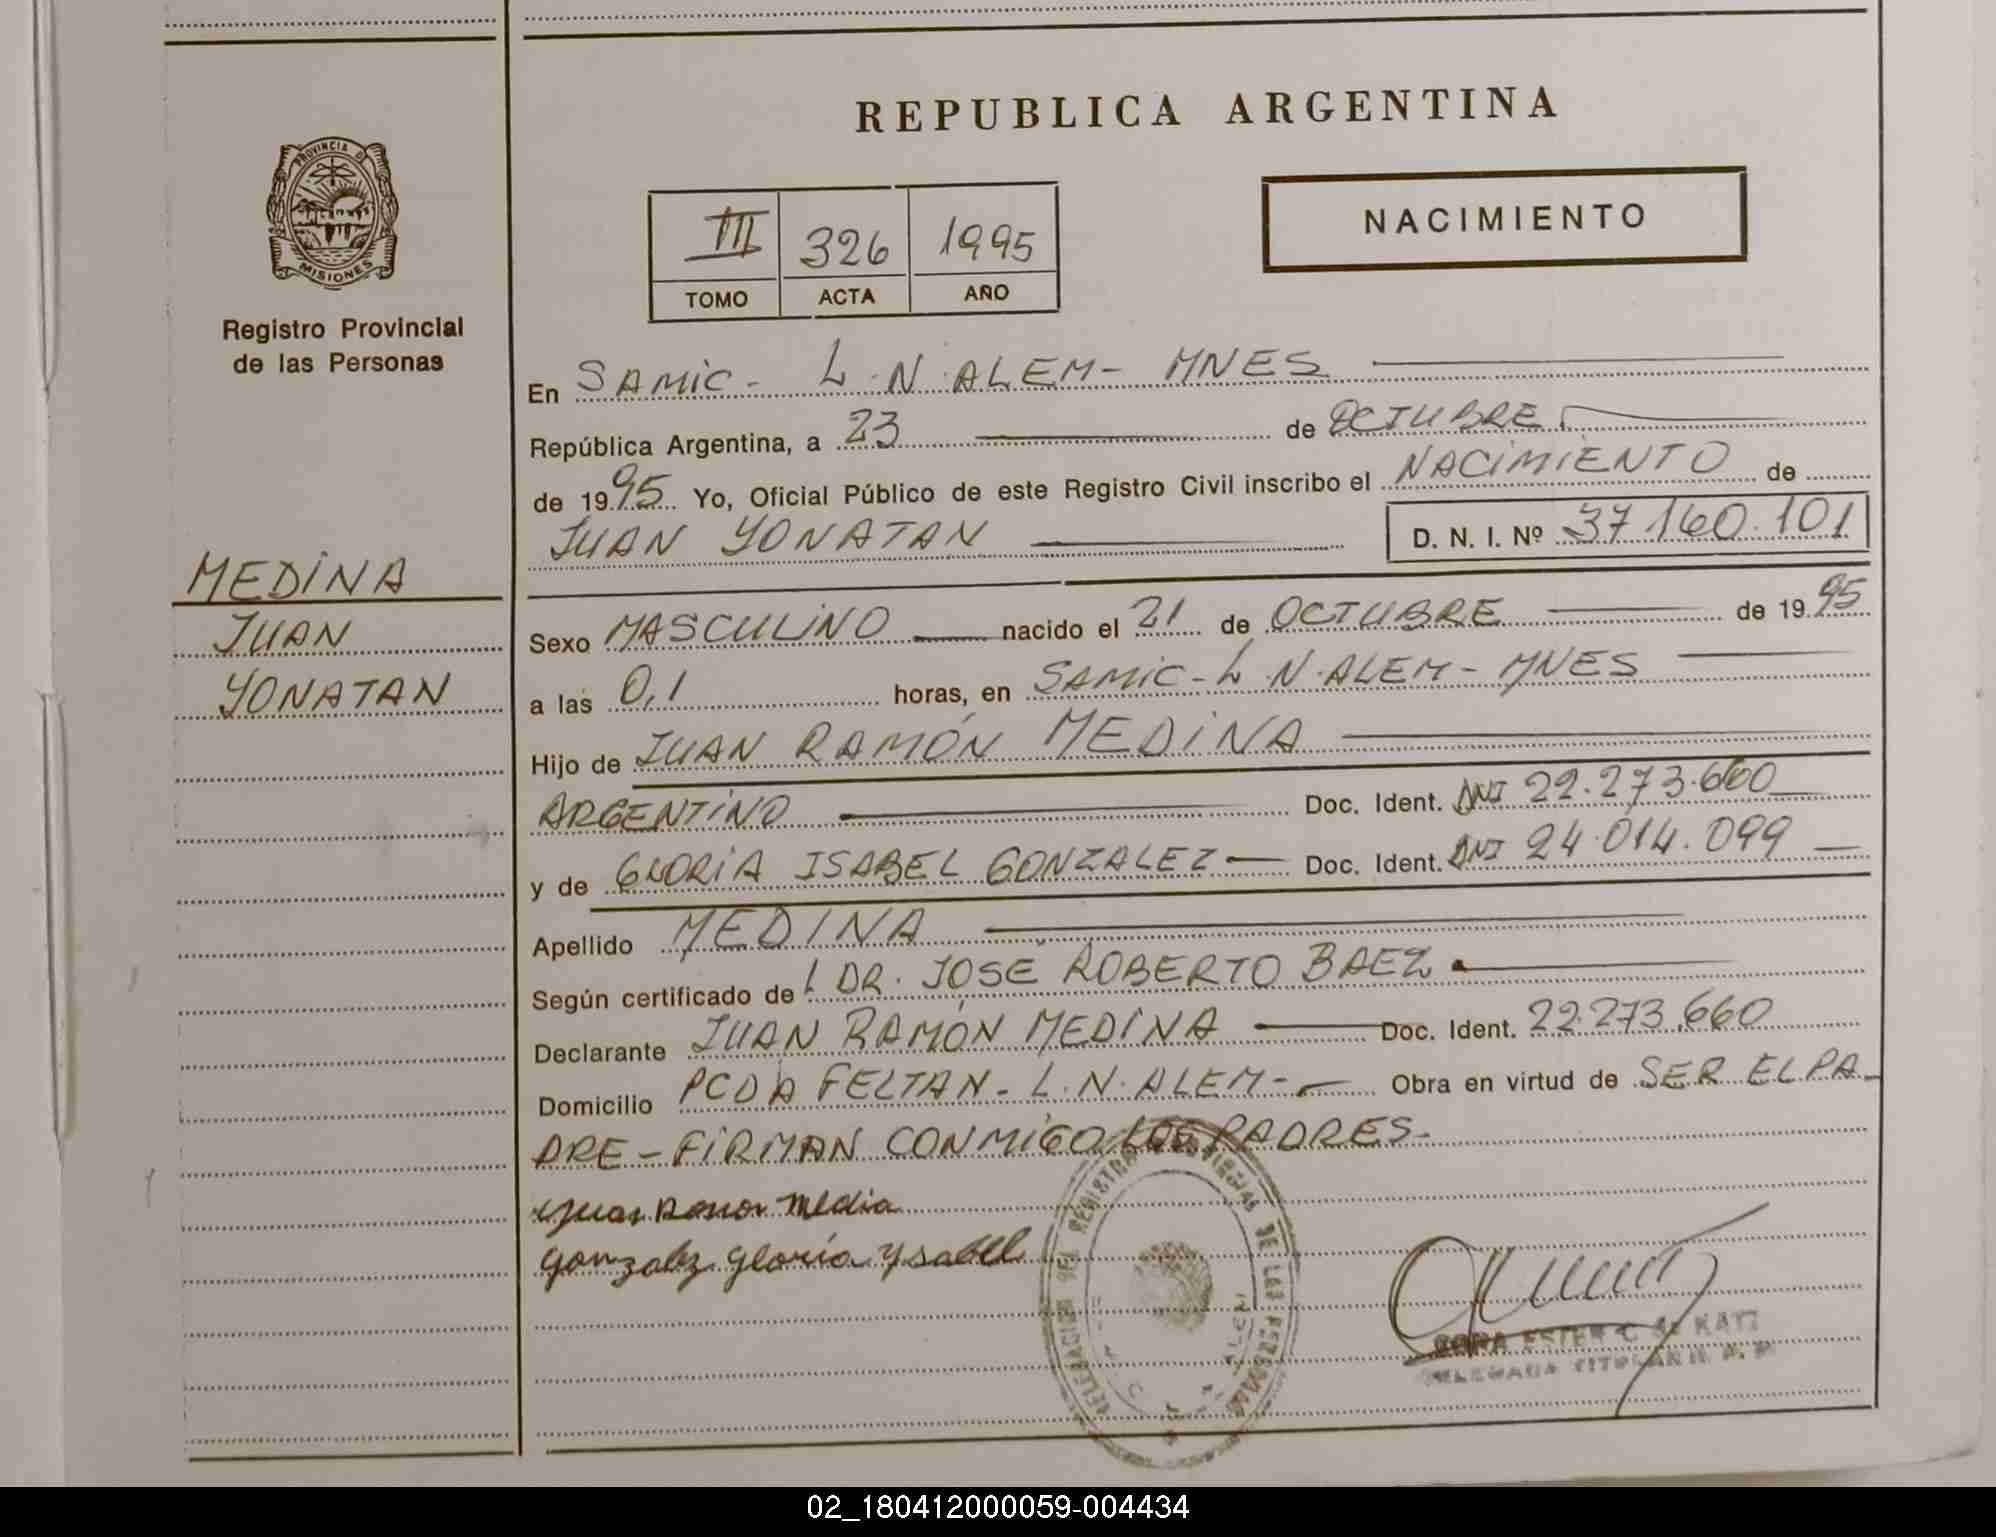 REPUBLICA ARGENTINA
PROVINCIA DE
MISIONES
Registro Provincial
de las Personas
NACIMIENTO
III 326 1995
TOMO ACTA AÑO
En SAMIC - L.N. ALEM - MNES
República Argentina, a 23 de OCTUBRE
de 1995 Yo, Oficial Público de este Registro Civil inscribo el NACIMIENTO de
JUAN YONATAN D. N. I. Nº 37160.101
MEDINA
JUAN
YONATAN
Sexo MASCULINO nacido el 21 de OCTUBRE de 1995
a las 0,1 horas, en SAMIC - L.N. ALEM - MNES
Hijo de JUAN RAMÓN MEDINA
ARGENTINO Doc. Ident. DNI 22.273.660
y de GLORIA ISABEL GONZALEZ Doc. Ident. DNI 24.014.099
Apellido MEDINA
Según certificado de DR. JOSÉ ROBERTO BAEZ
Declarante JUAN RAMÓN MEDINA Doc. Ident. 22.273.660
Domicilio PCDA FELTAN - L.N. ALEM - Obra en virtud de SER EL PA-
DRE - FIRMAN CONMIGO LOS PADRES -
Juan Medina
Gonzalez Gloria Ysabel
DELEGACION DEL REGISTRO DE LAS PERSONAS
ESTER C. de
DELEGADA TITULAR
02_180412000059-004434